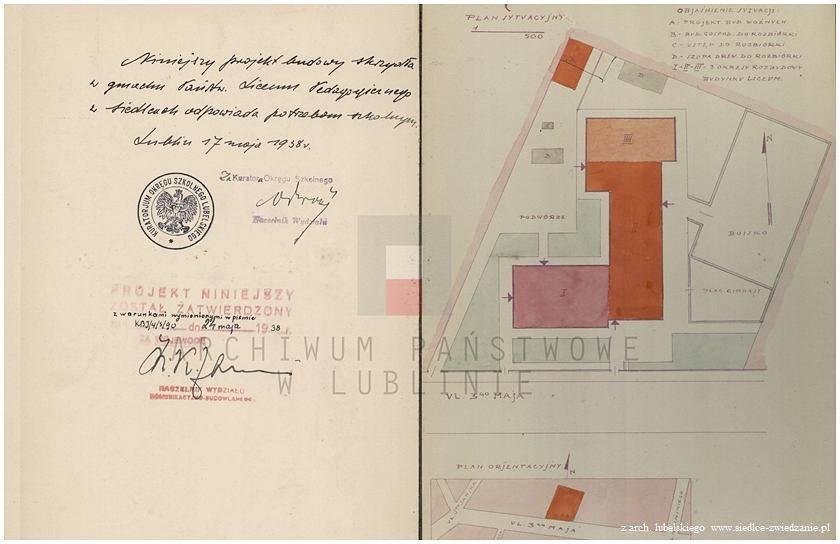 Niniejszy projekt budowy skrzydła
w gmachu Państw. Liceum Pedagogicznego
w Siedlcach odpowiada potrzebom szkolnym.
Lublin 17 maja 1938 r.
Z. Kurator Okręgu Szkolnego
Naczelnik Wydziału
KURATORJUM OKRĘGU SZKOLNEGO LUBELSKIEGO
PROJEKT NINIEJSZY
ZOSTAŁ ZATWIERDZONY
z warunkami wymienionymi w piśmie
dnia 24 maja 1938 r.
ZA WOJEWODĘ
NACZELNIK WYDZIAŁU
KOMUNIKACYJNO-BUDOWLANEGO
PLAN SYTVACYJNY
1
500
OBJAŚNIENIE SYTVACJI:
A - PROJEKT. BVD. WOŹNYCH
B - BVD. GOSPOD. DO ROZBIÓRKI
C - VSTĘP DO ROZBIÓRKI
D - SZOPA DREW. DO ROZBIÓRKI
I-II-III - 3 OKRESY ROZBVDOWY
BVDYNKV LICEVM.
N
III
PODWÓRZE
II
BOISKO
I
PLAC GIMNAST.
VL. 3GO MAJA
ARCHIWUM PAŃSTWOWE
W LUBLINIE
PLAN ORJENTACYJNY
N
VL. 3GO MAJA
z arch. lubelskiego www.siedlce-zwiedzanie.pl